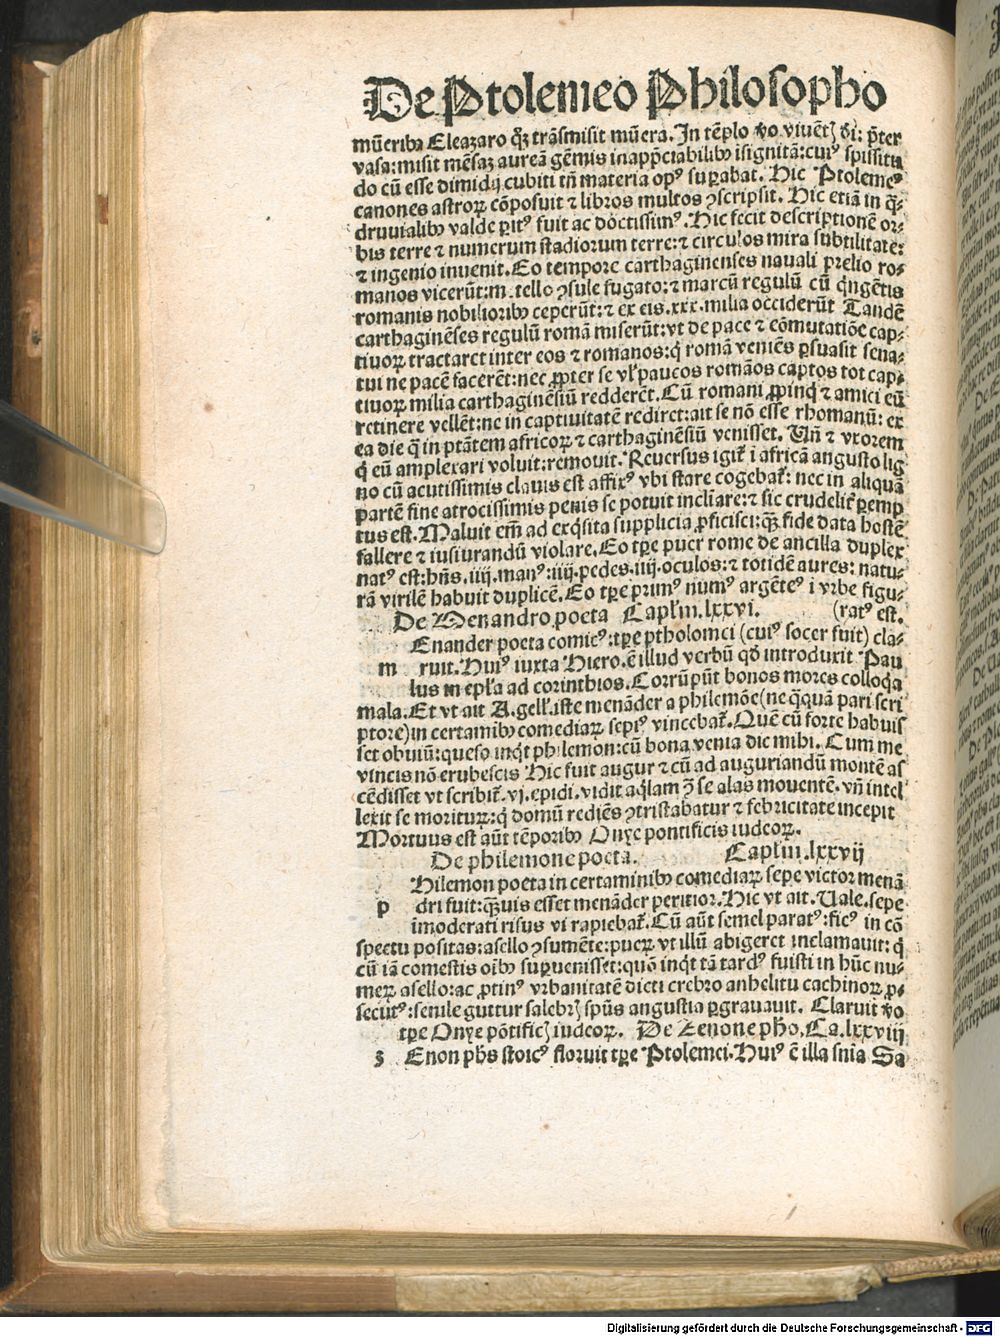 De Ptolemeo Philosopho
mūeribꝰ Eleazaro qͥ trāsmisit mūera. In tēplo ꝟo viuētꝭ dī: p̄ter
vasa: misit mēsaꝫ aureā gēmis inapp̄ciabilibꝰ īsignitā: cuiꝰ spissitu
do cū esse dimidij cubiti tn̄ materia opꝰ suꝑabat. Hic Ptolemeꝰ
canones astroꝝ cōposuit ⁊ libros multos ꝯscripsit. Hic etiā in q̄-
druuialibꝰ valde ꝑitꝰ fuit ac doctissimꝰ. Hic fecit descriptionē or-
bis terre ⁊ numerum stadiorum terre: ⁊ circulos mira subtilitate:
⁊ ingenio inuenit. Eo tempore carthaginenses nauali prelio ro-
manos vicerūt: m. tello ꝯsule fugato: ⁊ marcū regulū cū qͥngētis
romanis nobilioribꝰ ceperūt: ⁊ ex eis .xxx. milia occiderūt Tandē
carthaginēses regulū romā miserūt: vt de pace ⁊ cōmutatiōe cap-
tiuoꝝ tractaret inter eos ⁊ romanos: qͥ romā veniēs ꝑsuasit sena-
tui ne pacē facerēt: nec ꝓpter se vl̓ paucos romāos captos tot cap-
tiuoꝝ milia carthaginēsiū redderēt. Cū romani ꝓpinqͥ ⁊ amici eū
retinere vellēt: ne in captiuitatē rediret: ait se nō esse rhomanū: ex
ea die q̄ in ptātem africoꝝ ⁊ carthaginēsiū venisset. Vn̄ ⁊ vxorem
q̄ eū amplexari voluit: remouit. Reuersus igit᷑ ī africā angusto lig
no cū acutissimis clauis est affixꝰ vbi stare cogebat᷑: nec in aliquā
partē sine atrocissimis penis se potuit inclīare: ⁊ sic crudelit᷑ ꝑemp
tus est. Maluit em̄ ad exq̄sita supplicia ꝓficisci: qꝫ fide data hostē
fallere ⁊ iusiurandū violare. Eo tꝑe puer rome de ancilla duplex
natꝰ est: hn̄s .iiij. manꝰ: iiij. pedes. iiij. oculos: ⁊ totidē aures: natu-
rā virilē habuit duplicē. Eo tꝑe primꝰ numꝰ argētēꝰ ī vrbe figu-
De Menandro poeta Capl̓m. lxxvi. (ratꝰ est.
Enander poeta comicꝰ: tꝑe ptholomei (cuiꝰ socer fuit) cla-
m ruit. Huiꝰ iuxta Hiero. ē illud verbū qd̓ introduxit Pau
lus in epl̓a ad corinthios. Corrūpūt bonos mores colloq̄a
mala. Et vt ait A. gell̓. iste menāder a philemōe (ne q̄quā pari scri
ptore) in certamibꝰ comediaꝝ sepiꝰ vincebat᷑. Quē cū forte habuis
set obuiū: queso inqͥt philemon: cū bona venia dic mihi. Cum me
vincis nō erubescis Hic fuit augur ⁊ cū ad auguriandū montē as
cēdisset vt scribit᷑. vj. epidi. vidit aq̄lam ꝯ̄ se alas mouentē. vn̄ intel
lexit se morituꝝ: qͥ domū rediēs ꝯtristabatur ⁊ febricitate incepit
Mortuus est aūt tēporibꝰ Onye pontificis iudeoꝝ.
De philemone poeta. Capl̓m. lxxvij
Hilemon poeta in certaminibꝰ comediaꝝ sepe victor menā
p dri fuit: qꝫuis esset menāder peritior. Hic vt ait. Uale. sepe
īmoderati risus vi rapiebat᷑. Cū aūt semel paratꝰ: ficꝰ in cō
spectu positas: asello ꝯsumēte: pueꝝ vt illū abigeret inclamauit: qͥ
cū iā comestis oībꝰ suꝑuenisset: quō inqͥt tā tardꝰ fuisti in hūc nu-
meꝝ asello: ac ꝓtinꝰ vrbanitatē dicti crebro anhelitu cachinoꝝ ꝓ-
secutꝰ: senile guttur salebrꝭ spūs angustia ꝑgrauauit. Claruit ꝟo
tꝑe Onye pōtificꝭ iudeoꝝ. De Zenone pho, Ca. lxxviij
z Enon ph̄s stoicꝰ floruit tꝑe Ptolemei. Huiꝰ ē illa sn̄ia Sa
Digitalisierung gefördert durch die Deutsche Forschungsgemeinschaft - DFG